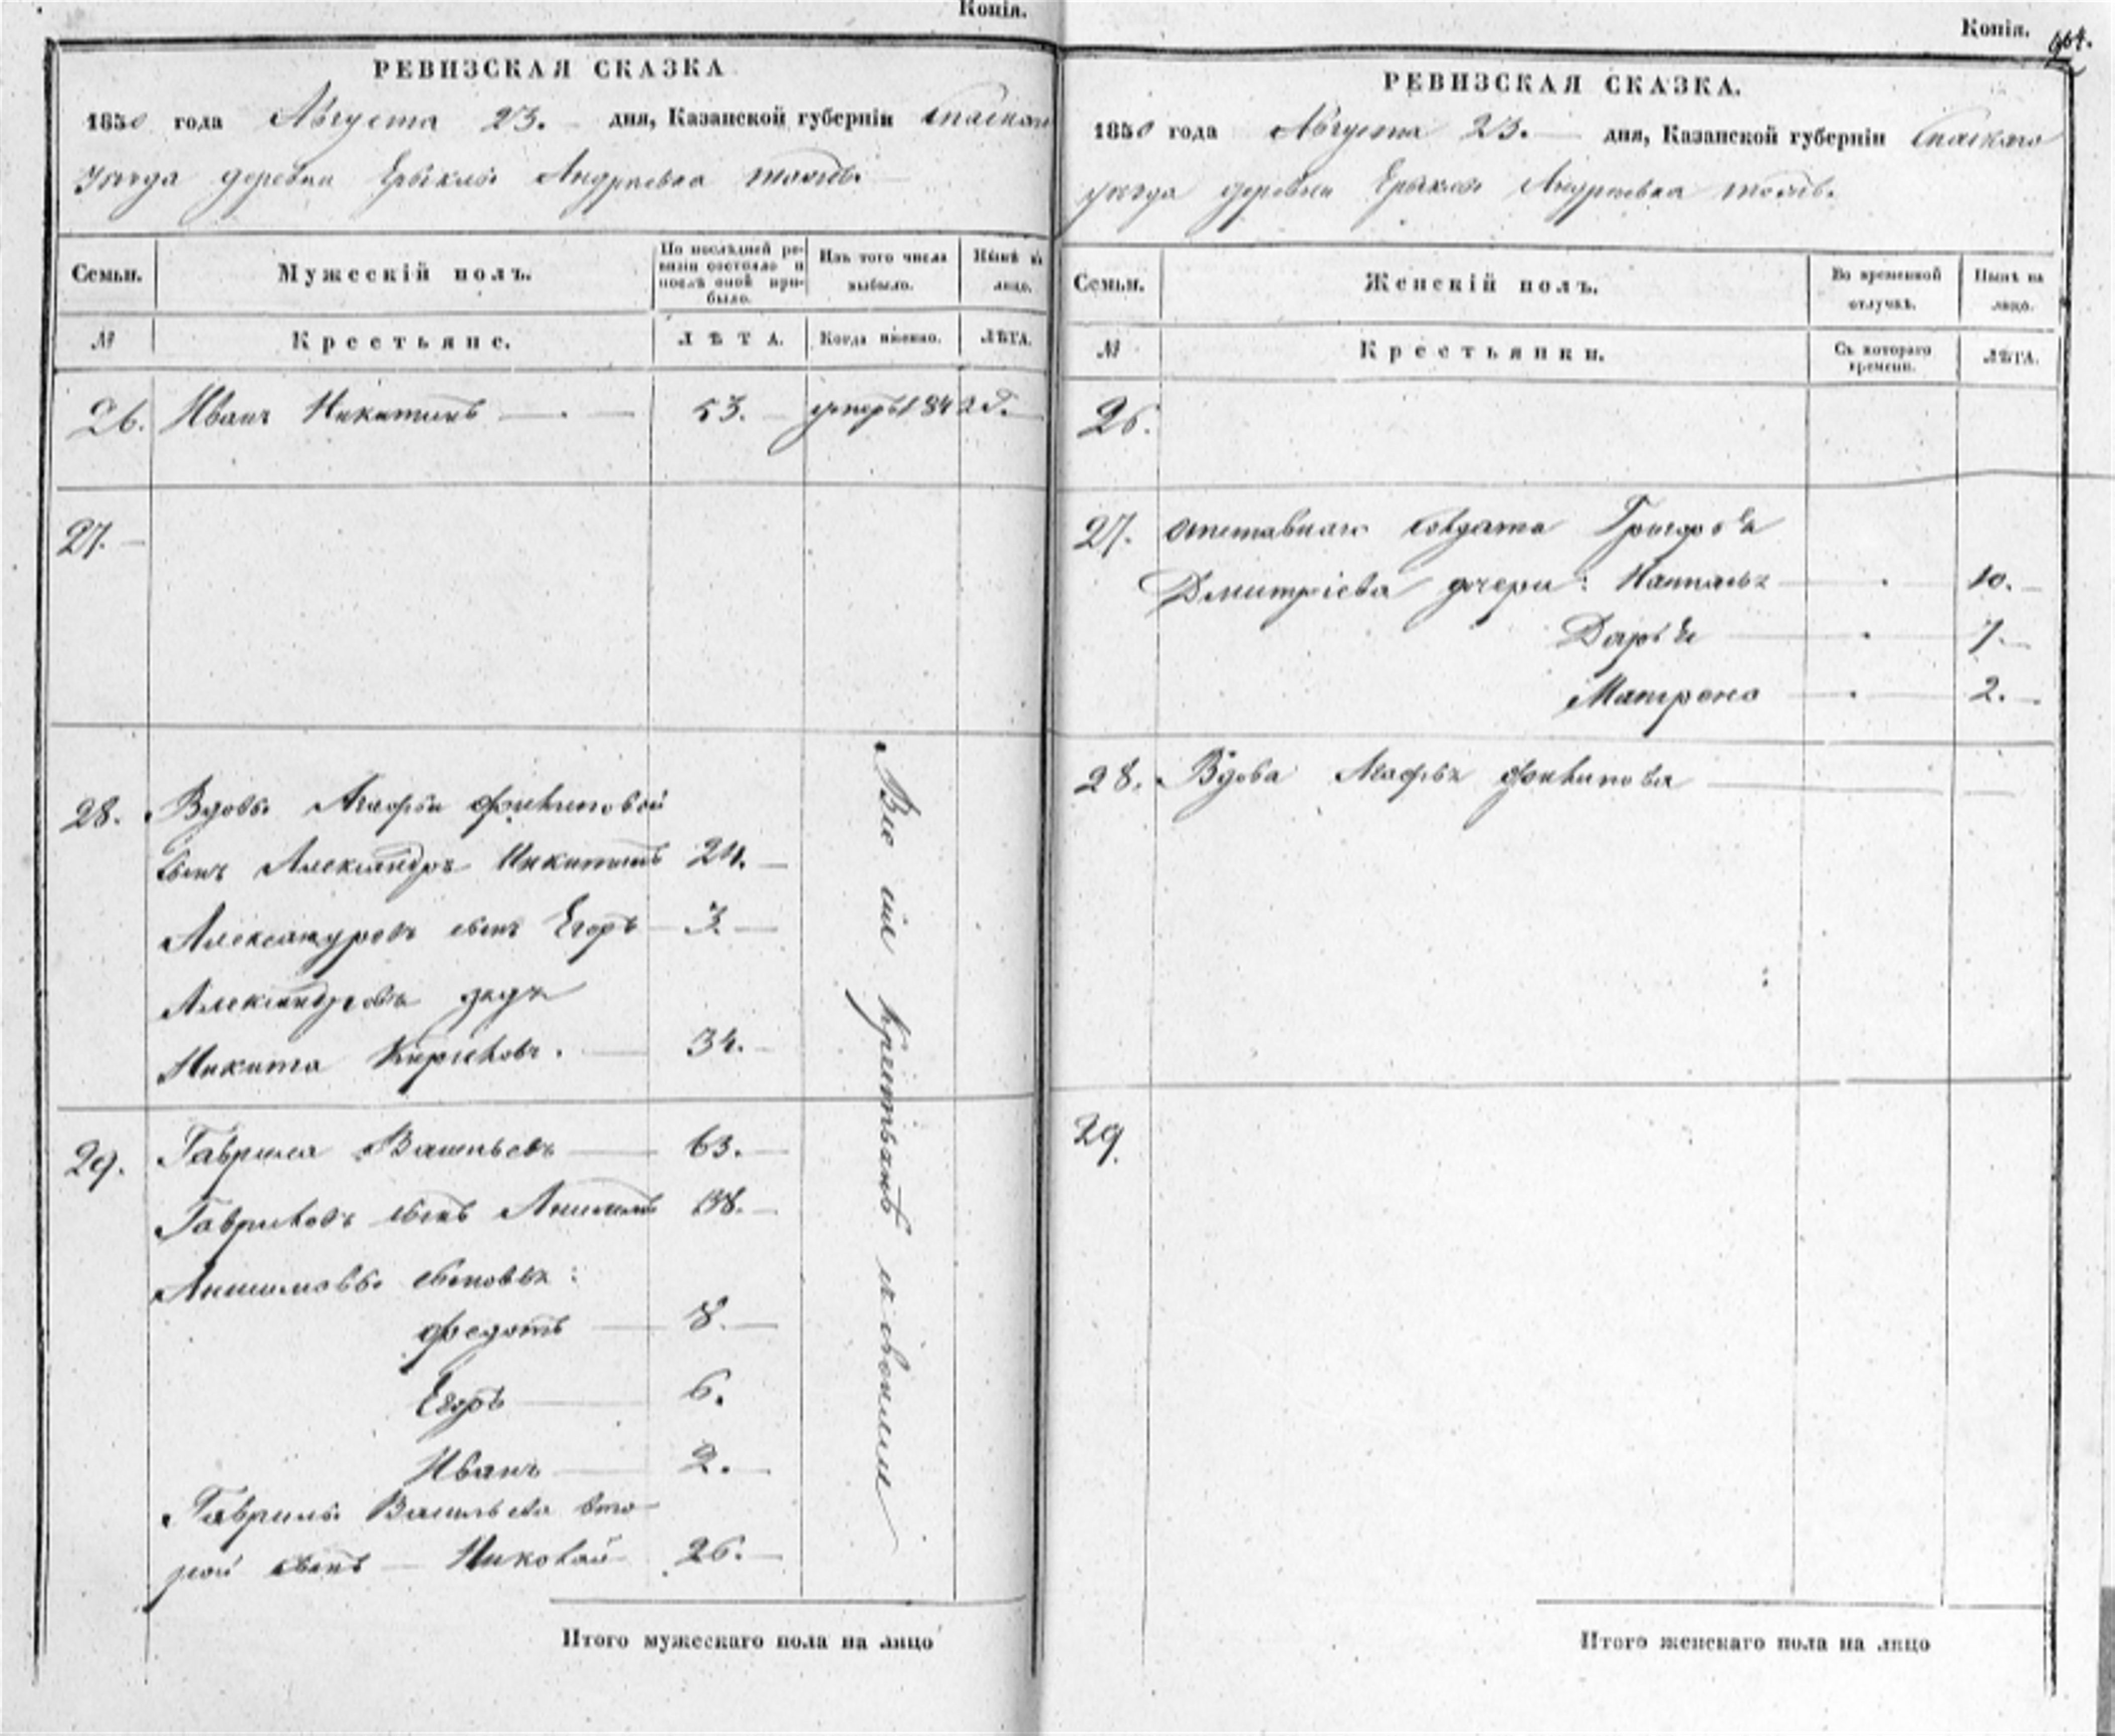 Копія.
РЕВИЗСКАЯ СКАЗКА
1850 года Августа 23. дня, Казанской губерніи Спаскаго
уѣзда деревни Ерыклы Андреевка тожъ
Семьи.
Мужескій полъ.
По послѣдней ре-
визіи состояло и
послѣ оной при-
было.
Изъ того числа
выбыло.
Нынѣ на
лицо.
№
Крестьяне.
ЛѢТА.
Когда именно.
ЛѢТА.
26. Иванъ Никитинъ 53. умеръ 1842 г.
27.
28. Вдовы Агафьи Филиповой
сынъ Александръ Никитинъ 24.
Александровъ сынъ Егоръ 3.
Александровъ дядя
Никита Кириловъ. 34.
29. Гаврила Васильевъ 63.
Гавриловъ сынъ Анисимъ 38.
Анисимовы сыновья:
Федотъ 8.
Егоръ 6.
Иванъ 2.
Гаврилы Васильева вто-
рой сынъ Николай 26.
Все сіи крестьянъ
Итого мужескаго пола на лицо
Копія. 664.
РЕВИЗСКАЯ СКАЗКА.
1850 года Августа 23. дня, Казанской губерніи Спаскаго
уѣзда деревни Ерыклы Андреевка тожъ.
Семьи.
Женскій полъ.
Во временной
отлучкѣ.
Нынѣ на
лицо.
№
Крестьянки.
Съ котораго
времени.
ЛѢТА.
26.
27. Отставнаго Солдата Григорья
Дмитріева дочери: Наталья 10.
Дарья 7.
Матрена 2.
28. Вдова Агафья Филипова
29.
Итого женскаго пола на лицо